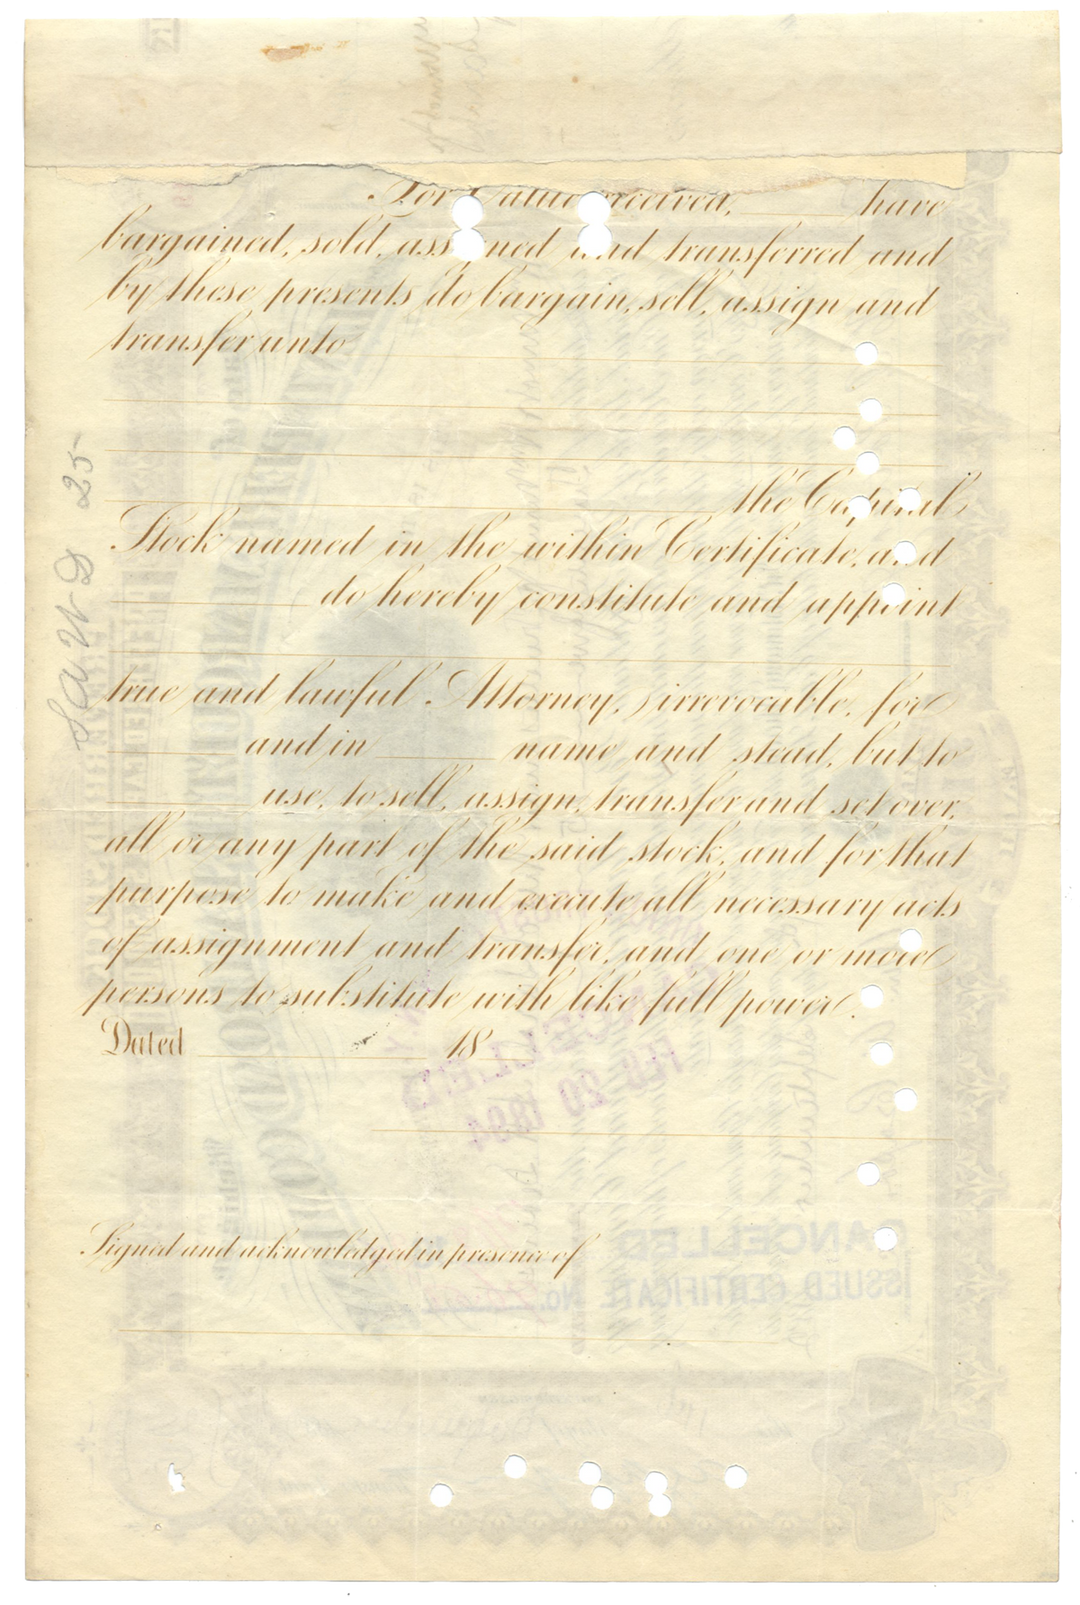 For Value received, have
bargained, sold, assigned and transferred and
by these presents do bargain, sell, assign and
transfer unto
the Capital
Stock named in the within Certificate, and
do hereby constitute and appoint
true and lawful Attorney, irrevocable, for
and in name and stead, but to
use, to sell, assign, transfer and set over,
all or any part of the said stock, and for that
purpose to make and execute all necessary acts
of assignment and transfer, and one or more
persons to substitute with like full power.
Dated 18
Signed and acknowledged in presence of
CANCELLED
FEB 20 1894
CANCELLED
ISSUED CERTIFICATE No.